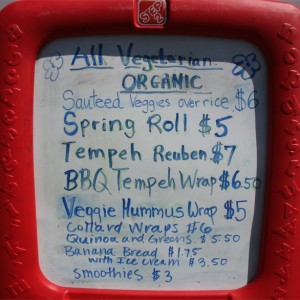 STEP2
All Vegetarian
ORGANIC
Sauteed Veggies over rice $6
Spring Roll $5
Tempeh Reuben $7
BBQ Tempeh Wrap $6.50
Veggie Hummus Wrap $5
Collard Wraps $6
Quinoa and Greens $5.50
Banana Bread $1.75
with Ice cream $3.50
Smoothies $3